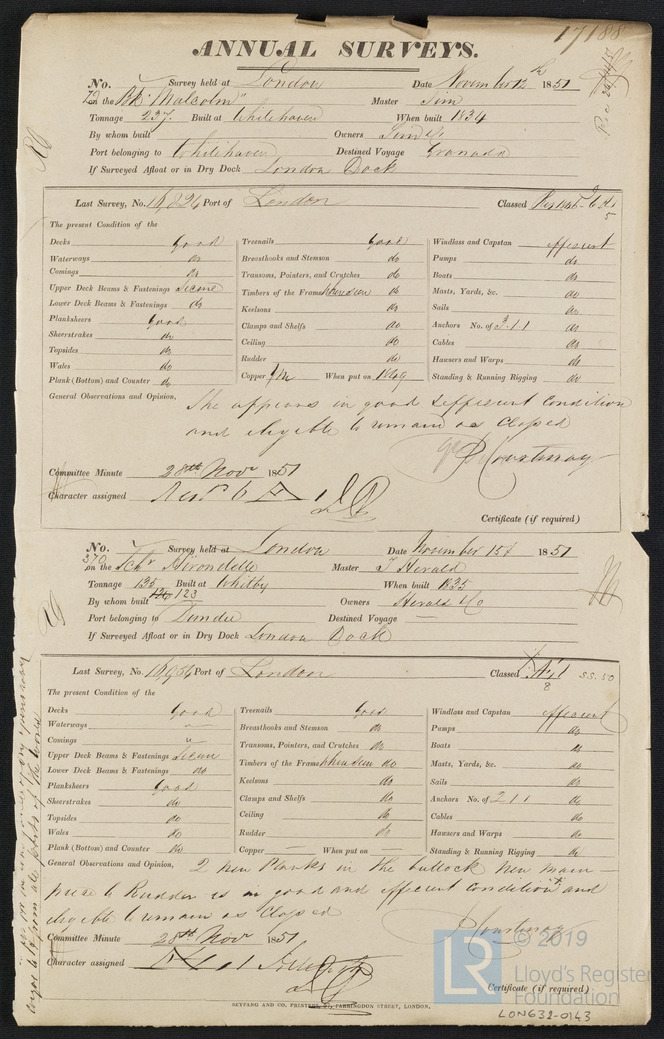 17188
ANNUAL SURVEYS.
No. Survey held at London Date November 12th 1851
on the Bk "Malcolm" Master Sim
Tonnage 237 Built at Whitehaven When built 1834
By whom built Owners Sim & Co
Port belonging to Whitehaven Destined Voyage Granada
If Surveyed Afloat or in Dry Dock London Dock
Last Survey, No. Port of London Classed
The present Condition of the
Decks Good Treenails Good Windlass and Capstan efficient
Waterways do Breasthooks and Stemson do Pumps do
Comings do Transoms, Pointers, and Crutches do Boats do
Upper Deck Beams & Fastenings Secure Timbers of the Frame where seen do Masts, Yards, &c. do
Lower Deck Beams & Fastenings do Keelsons do Sails do
Planksheers Good Clamps and Shelfs do Anchors No. of 3.1.1 do
Sheerstrakes do Ceiling do Cables do
Topsides do Rudder do Hawsers and Warps do
Wales do Copper When put on 1849 Standing & Running Rigging do
Plank (Bottom) and Counter do
General Observations and Opinion, She appears in good & efficient Condition
and eligible to remain as Classed
Courtenay
Committee Minute 28th Novr 1851
Character assigned
Certificate (if required)
No. 370 Survey held at London Date November 15th 1851
on the Schr Hirondelle Master J Herald
Tonnage 135 Built at Whitby When built 1835
By whom built 123 Owners Herald & Co
Port belonging to Dundee Destined Voyage
If Surveyed Afloat or in Dry Dock London Dock
Last Survey, No. Port of London Classed A 1 SS.50
8
The present Condition of the
Decks Good Treenails Good Windlass and Capstan efficient
Waterways " Breasthooks and Stemson do Pumps do
Comings " Transoms, Pointers, and Crutches do Boats do
Upper Deck Beams & Fastenings Secure Timbers of the Frame where seen do Masts, Yards, &c. do
Lower Deck Beams & Fastenings do Keelsons do Sails do
Planksheers Good Clamps and Shelfs do Anchors No. of 2 1 1 do
Sheerstrakes do Ceiling do Cables do
Topsides do Rudder do Hawsers and Warps do
Wales do Copper — When put on — Standing & Running Rigging do
Plank (Bottom) and Counter do
General Observations and Opinion, 2 new Planks in the bullock New main
piece to Rudder is in good and efficient condition and
eligible to remain as Classed
Courtenay
Committee Minute 28th Novr 1851
Character assigned
Certificate (if required)
SEYFANG AND CO. PRINTERS, FARRINGDON STREET, LONDON.
LR © 2019
Lloyd's Register
Foundation
LON632-0143